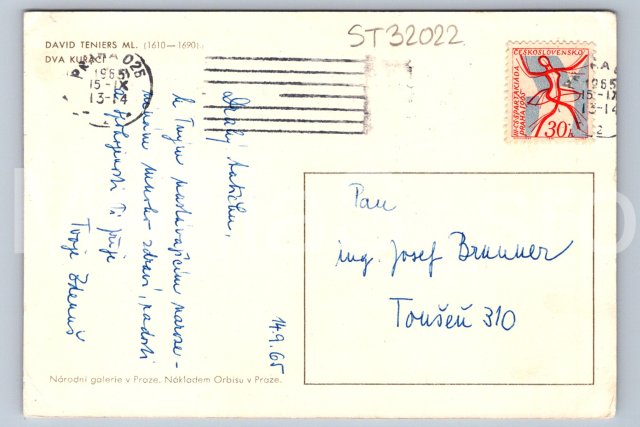 DAVID TENIERS ML. (1610—1690):
DVA KUŘÁCI
ST32022
PRAHA 025
1965
15-IX
13-14
ČESKOSLOVENSKO
III. CS. SPARTAKIÁDA
PRAHA 1965
30h
1965
15-IX
13-14
Drahý tatíčku,
k Tvým nastávajícím naroze-
ninám mnoho zdraví, radosti
a spokojenosti Ti přeje
Tvoje Zdenuš
14.9.65
Pan
ing. Josef Brunner
Toušeň 310
Národní galerie v Praze. Nákladem Orbisu v Praze.